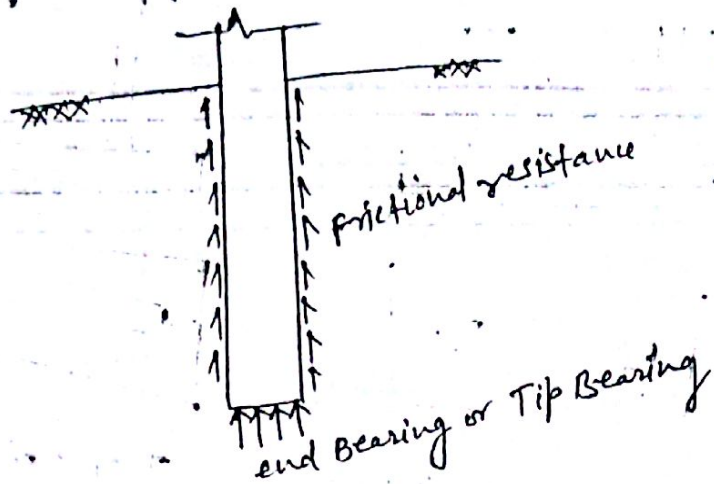 frictional resistance
end Bearing or Tip Bearing